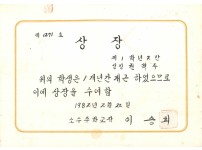 제 1271 호
상 장
제 1 학년 2 반
성명 권 혁 우
위의 학생은 1 개년간 개근 하였으므로
이에 상장을 수여함
1982년 2월 22일
소수중학교장 이 승 희